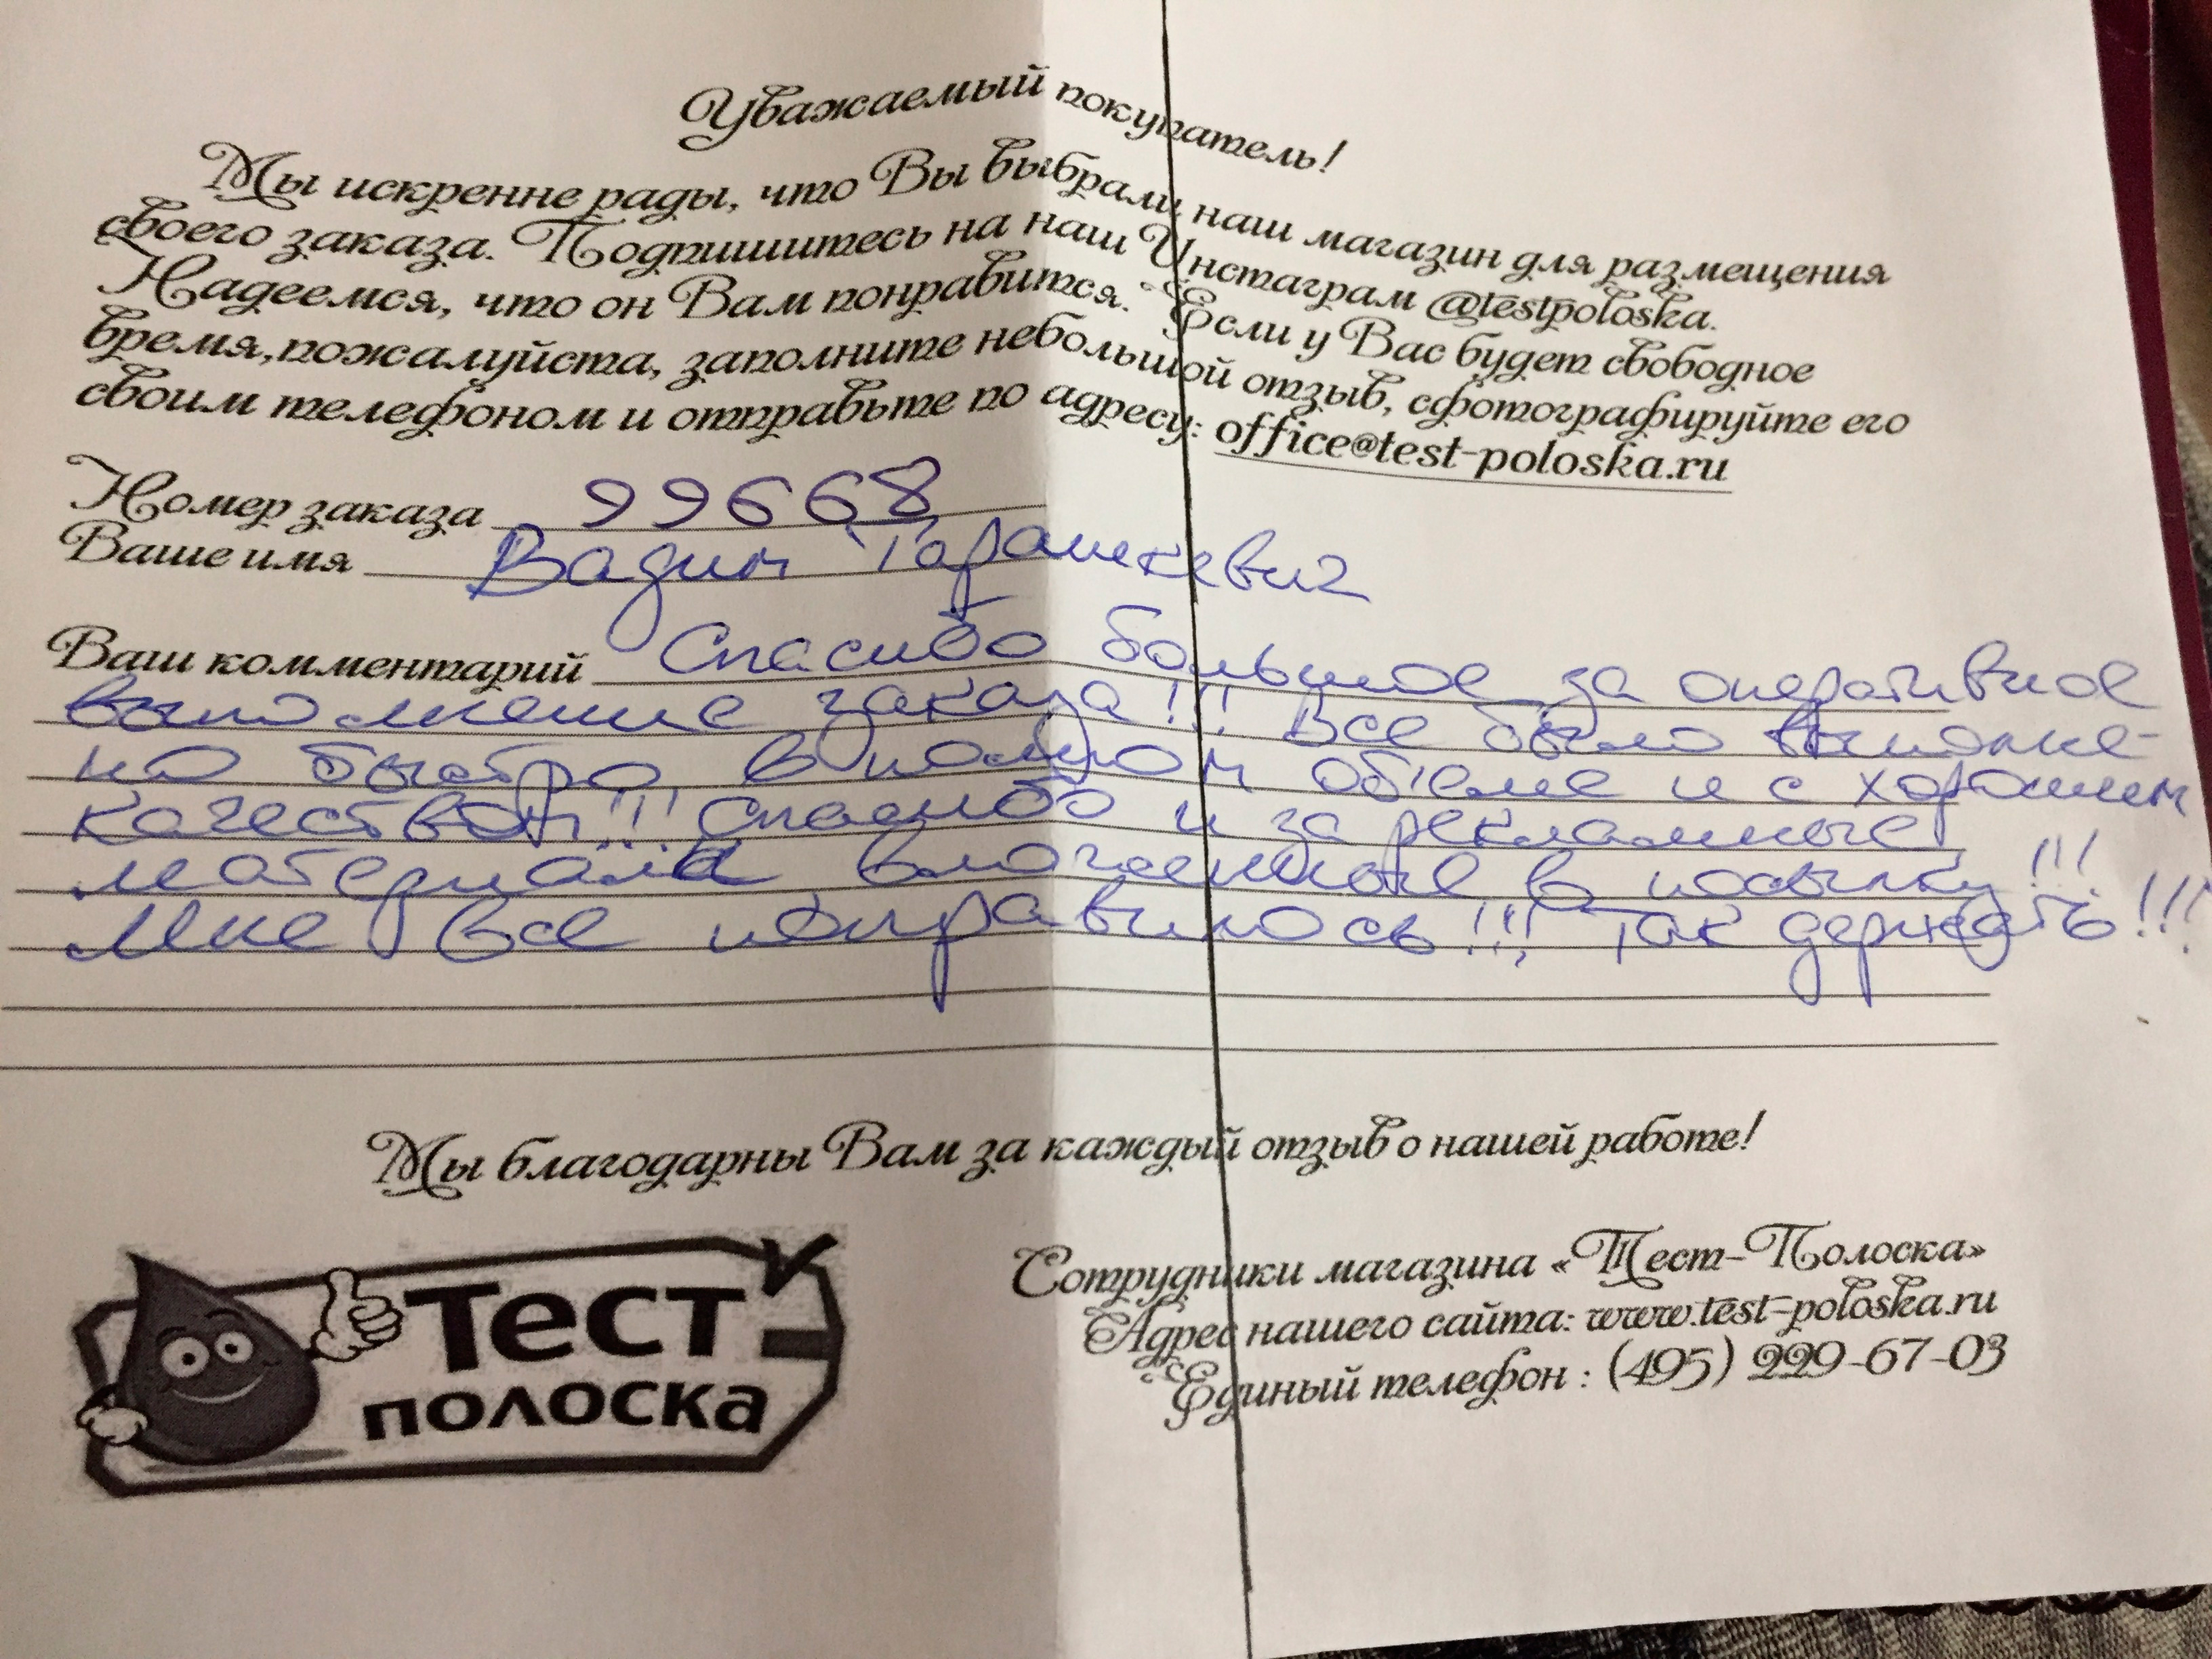 Уважаемый покупатель!
Мы искренне рады, что Вы выбрали наш магазин для размещения
своего заказа. Подпишитесь на наш Инстаграм @testpoloska.
Надеемся, что он Вам понравится. Если у Вас будет свободное
время,пожалуйста, заполните небольшой отзыв, сфотографируйте его
своим телефоном и отправьте по адресу: office@test-poloska.ru
Номер заказа 99668
Ваше имя Вадим Тарашкевич
Ваш комментарий Спасибо большое за оперативное
выполнение заказа!!! Все было выполне-
но быстро, в полном объеме и с хорошим
качеством!!! Спасибо и за рекламные
материалы вложенные в посылку!!!
Мне все понравилось!!! Так держать!!!
Мы благодарны Вам за каждый отзыв о нашей работе!
Сотрудники магазина «Тест-Полоска»
Адрес нашего сайта: www.test-poloska.ru
Единый телефон : (495) 229-67-03
Тест
полоска